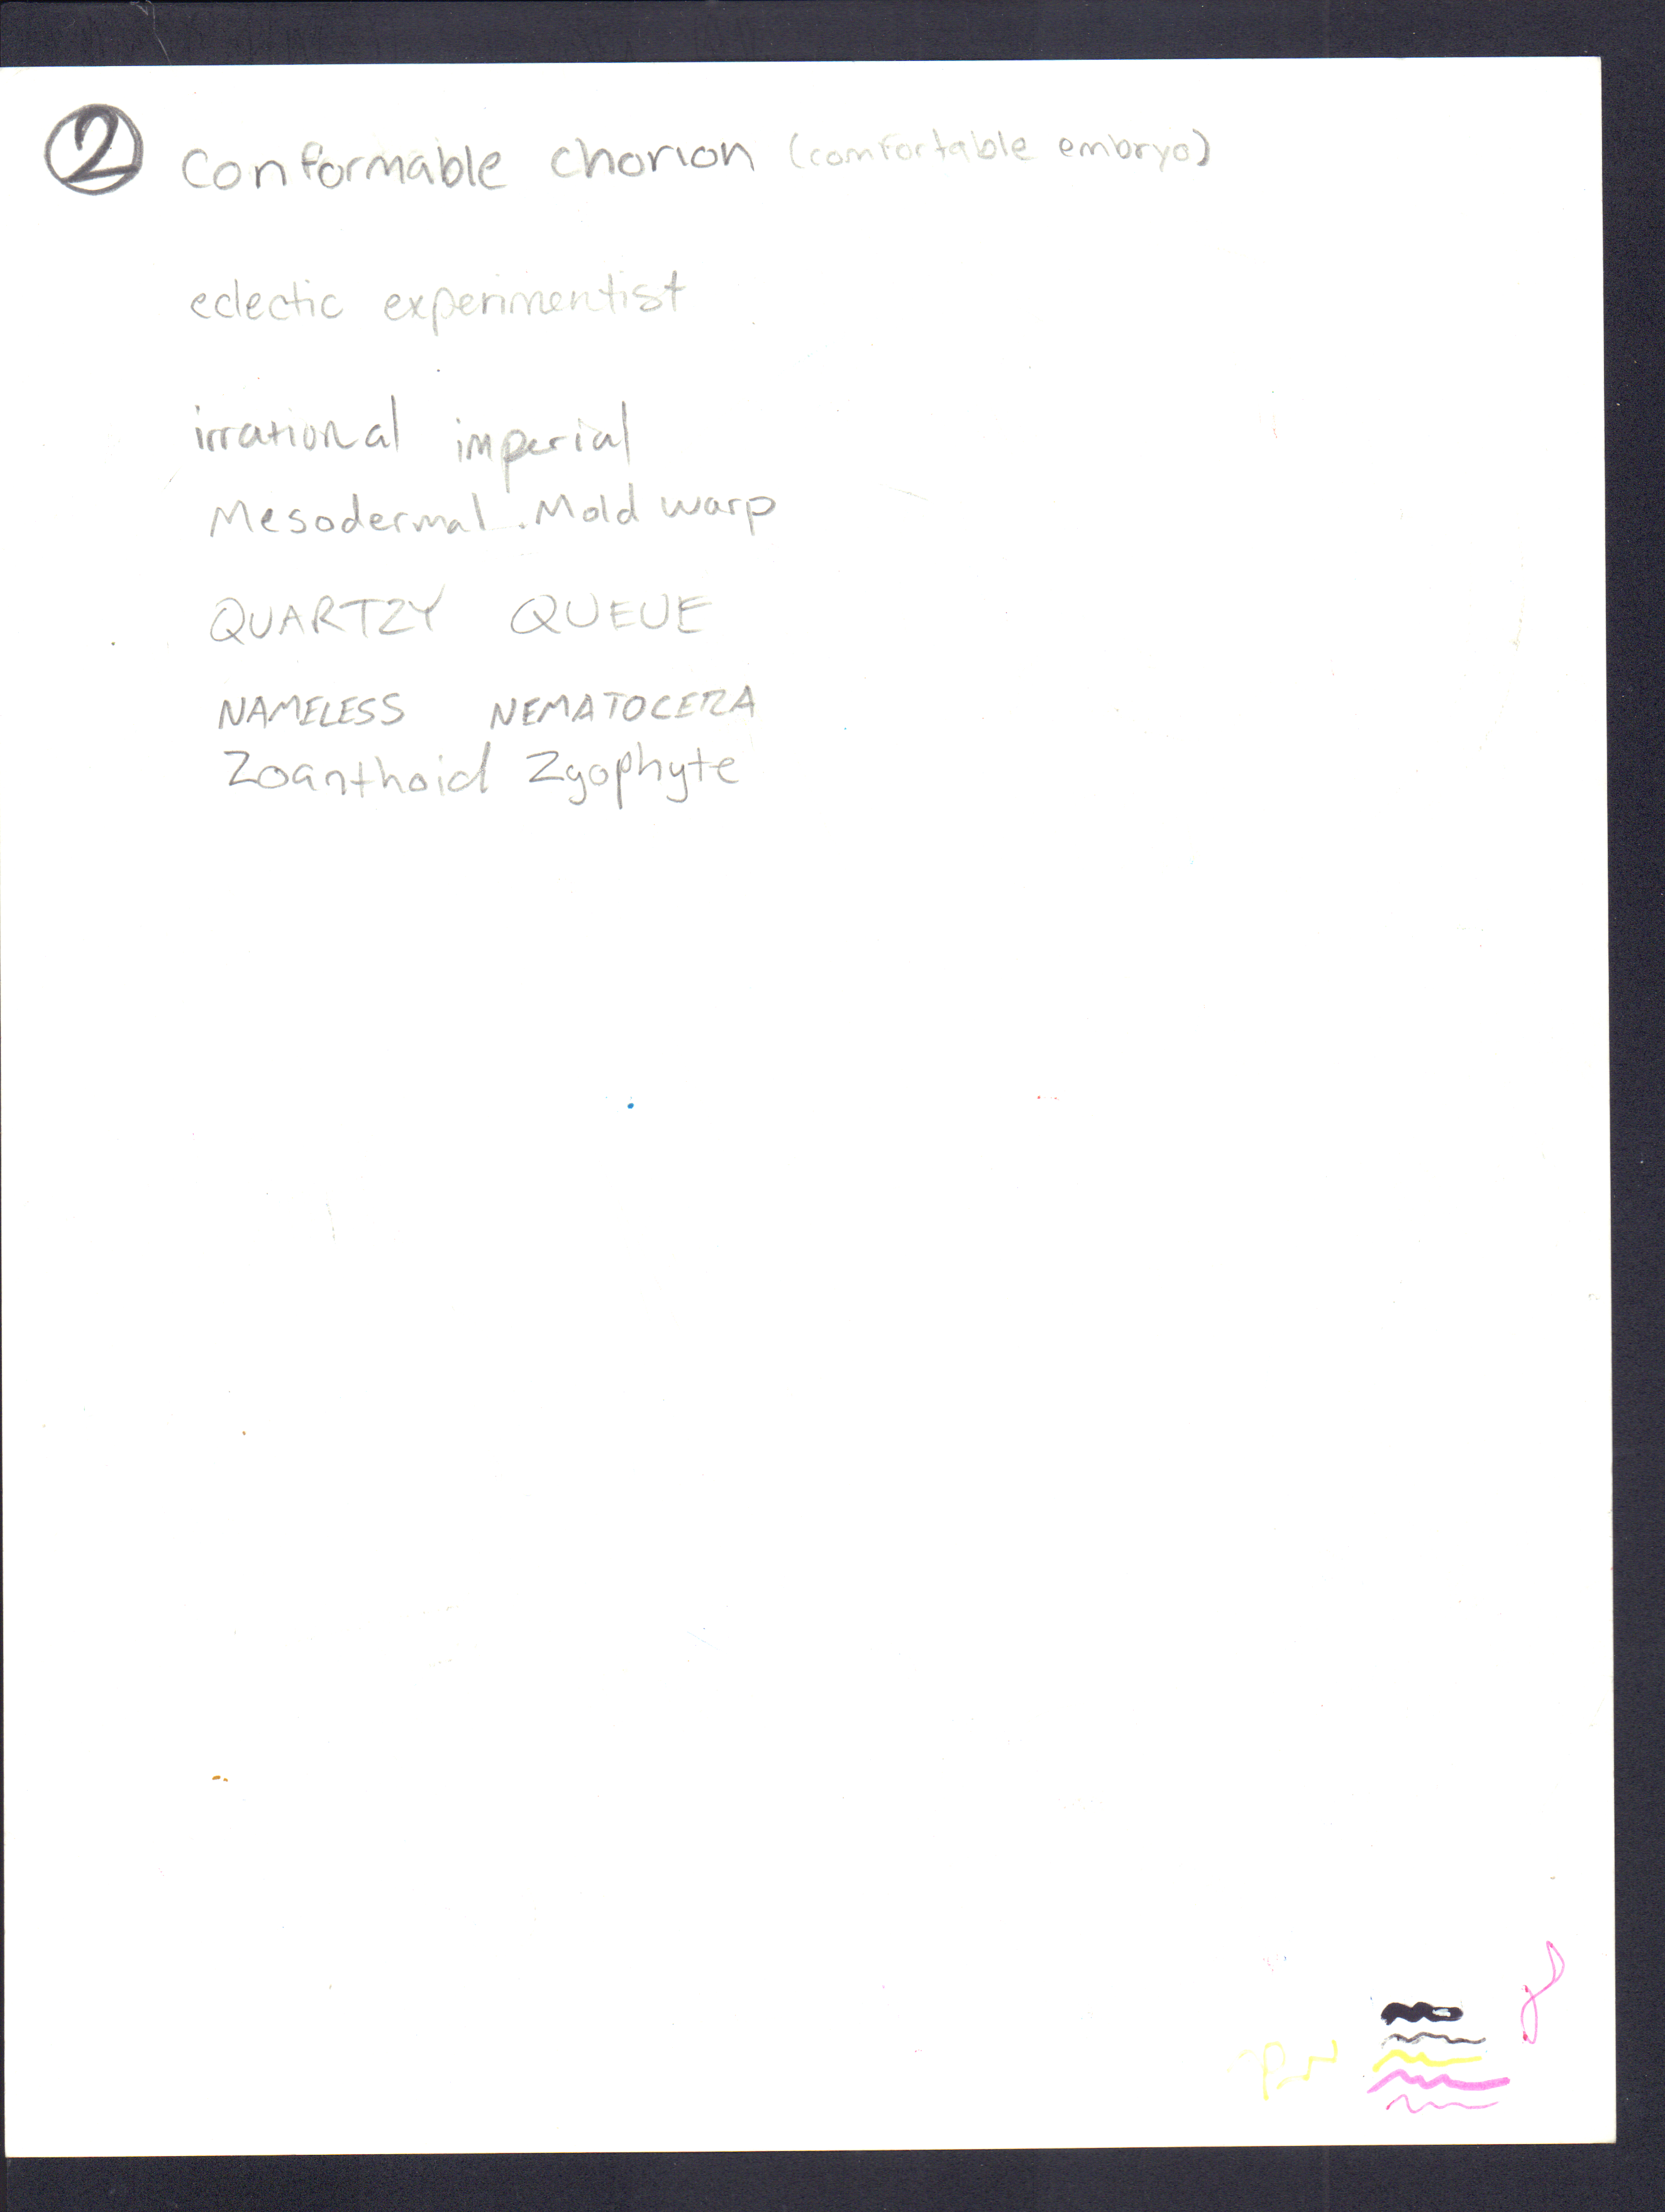 2 Conformable chorion (comfortable embryo)
eclectic experimentist
irrational imperial
Mesodermal Mold warp
QUARTZY QUEUE
NAMELESS NEMATOCERA
Zoanthoid Zgophyte